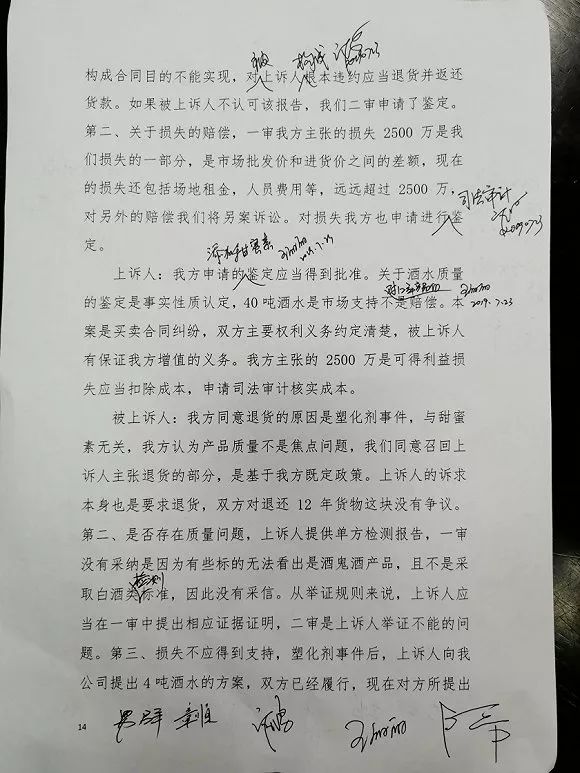 被 构成
构成合同目的不能实现，对上诉人根本违约应当退货并返还
货款。如果被上诉人不认可该报告，我们二审申请了鉴定。
第二、关于损失的赔偿，一审我方主张的损失 2500 万是我
们损失的一部分，是市场批发价和进货价之间的差额，现在
的损失还包括场地租金，人员费用等，远远超过 2500 万，
司法审计
对另外的赔偿我们将另案诉讼。对损失我方也申请进行鉴
定。
添加甜蜜素 2019.7.23
上诉人：我方申请的鉴定应当得到批准。关于酒水质量
的鉴定是事实性质认定，40 吨酒水是市场支持不是赔偿。本
2019.7.23
案是买卖合同纠纷，双方主要权利义务约定清楚，被上诉人
有保证我方增值的义务。我方主张的 2500 万是可得利益损
失应当扣除成本，申请司法审计核实成本。
被上诉人：我方同意退货的原因是塑化剂事件，与甜蜜
素无关，我方认为产品质量不是焦点问题，我们同意召回上
诉人主张退货的部分，是基于我方既定政策。上诉人的诉求
本身也是要求退货，双方对退还 12 年货物这块没有争议。
第二、是否存在质量问题，上诉人提供单方检测报告，一审
没有采纳是因为有些标的无法看出是酒鬼酒产品，且不是采
检测
取白酒类标准，因此没有采信。从举证规则来说，上诉人应
当在一审中提出相应证据证明，二审是上诉人举证不能的问
题。第三、损失不应得到支持，塑化剂事件后，上诉人向我
公司提出 4 吨酒水的方案，双方已经履行，现在对方所提出
14